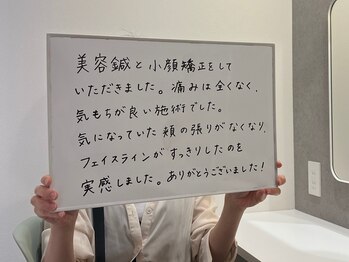 美容鍼と小顔矯正をして
いただきました。痛みは全くなく、
気もちが良い施術でした。
気になっていた頬の張りがなくなり、
フェイスラインがすっきりしたのを
実感しました。ありがとうございました!